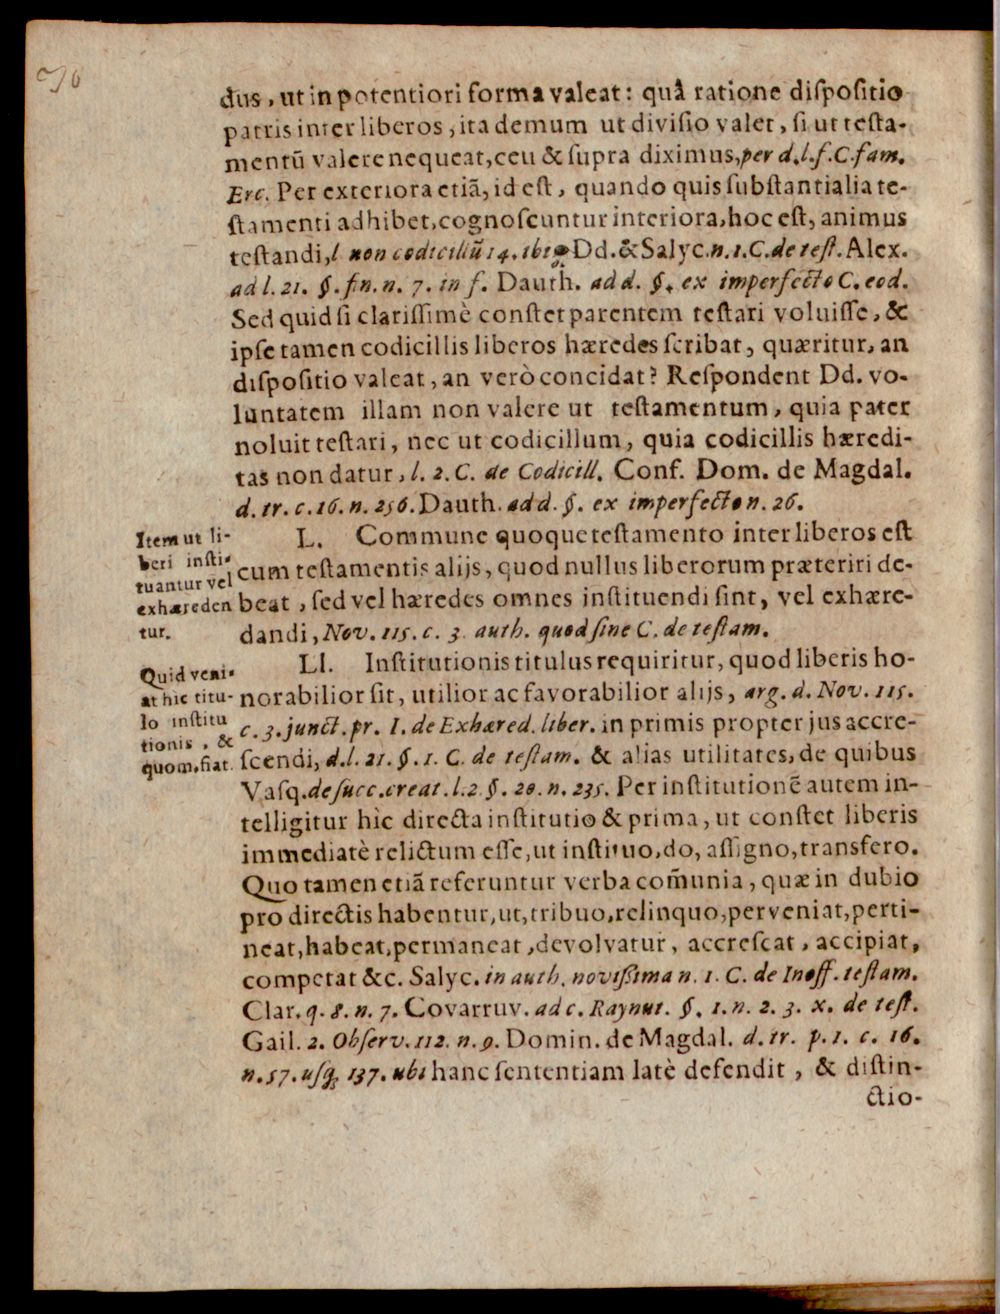 dus, ut in potentiori forma valeat: quâ ratione diſpoſitio
patris inter liberos, ita demum ut diviſio valet, ſi ut teſta-
mentū valere nequeat, ceu & ſupra diximus, per d. l. f. C. fam.
Erc. Per exteriora etiā, id eſt, quando quis ſubſtantialia te-
ſtamenti adhibet, cognoſcuntur interiora, hoc eſt, animus
teſtandi, l non codicillū 14. ibiq; Dd. & Salyc. n. 1. C. de teſt. Alex.
ad l. 21. §. fin. n. 7. in f. Dauth. ad d. §. ex imperfecto C. eod.
Sed quid ſi clariſſimè conſtet parentem teſtari voluiſſe, &
ipſe tamen codicillis liberos hæredes ſcribat, quæritur, an
diſpoſitio valeat, an verò concidat? Reſpondent Dd. vo-
luntatem illam non valere ut teſtamentum, quia pater
noluit teſtari, nec ut codicillum, quia codicillis hæredi-
tas non datur, l. 2. C. de Codicill. Conf. Dom. de Magdal.
d. tr. c. 16. n. 256. Dauth. ad d. §. ex imperfecto n. 26.
Item ut li-
beri inſti-
tuantur vel
exhæreden
tur.
L. Commune quoque teſtamento inter liberos eſt
cum teſtamentis alijs, quod nullus liberorum præteriri de-
beat, ſed vel hæredes omnes inſtituendi ſint, vel exhære-
dandi, Nov. 115. c. 3. auth. quod ſine C. de teſtam.
Quid veni-
at hic titu-
lo inſtitu
tionis, &
quom. fiat.
LI. Inſtitutionis titulus requiritur, quod liberis ho-
norabilior ſit, utilior ac favorabilior alijs, arg. d. Nov. 115.
c. 3. junct. pr. I. de Exhæred. liber. in primis propter jus accre-
ſcendi, d. l. 21. §. 1. C. de teſtam. & alias utilitates, de quibus
Vaſq. de ſucc. creat. l. 2. §. 20. n. 235. Per inſtitutionē autem in-
telligitur hîc directa inſtitutio & prima, ut conſtet liberis
immediatè relictum eſſe, ut inſtituo, do, aſſigno, transfero.
Quo tamen etiā referuntur verba com̄unia, quæ in dubio
pro directis habentur, ut, tribuo, relinquo, perveniat, perti-
neat, habeat, permaneat, devolvatur, accreſcat, accipiat,
competat &c. Salyc. in auth. noviſſima n. 1. C. de Inoff. teſtam.
Clar. q. 8. n. 7. Covarruv. ad c. Raynut. §. 1. n. 2. 3. x. de teſt.
Gail. 2. Obſerv. 112. n. 9. Domin. de Magdal. d. tr. p. 1. c. 16.
n. 57. uſq; 137. ubi hanc ſententiam latè defendit, & diſtin-
ctio-